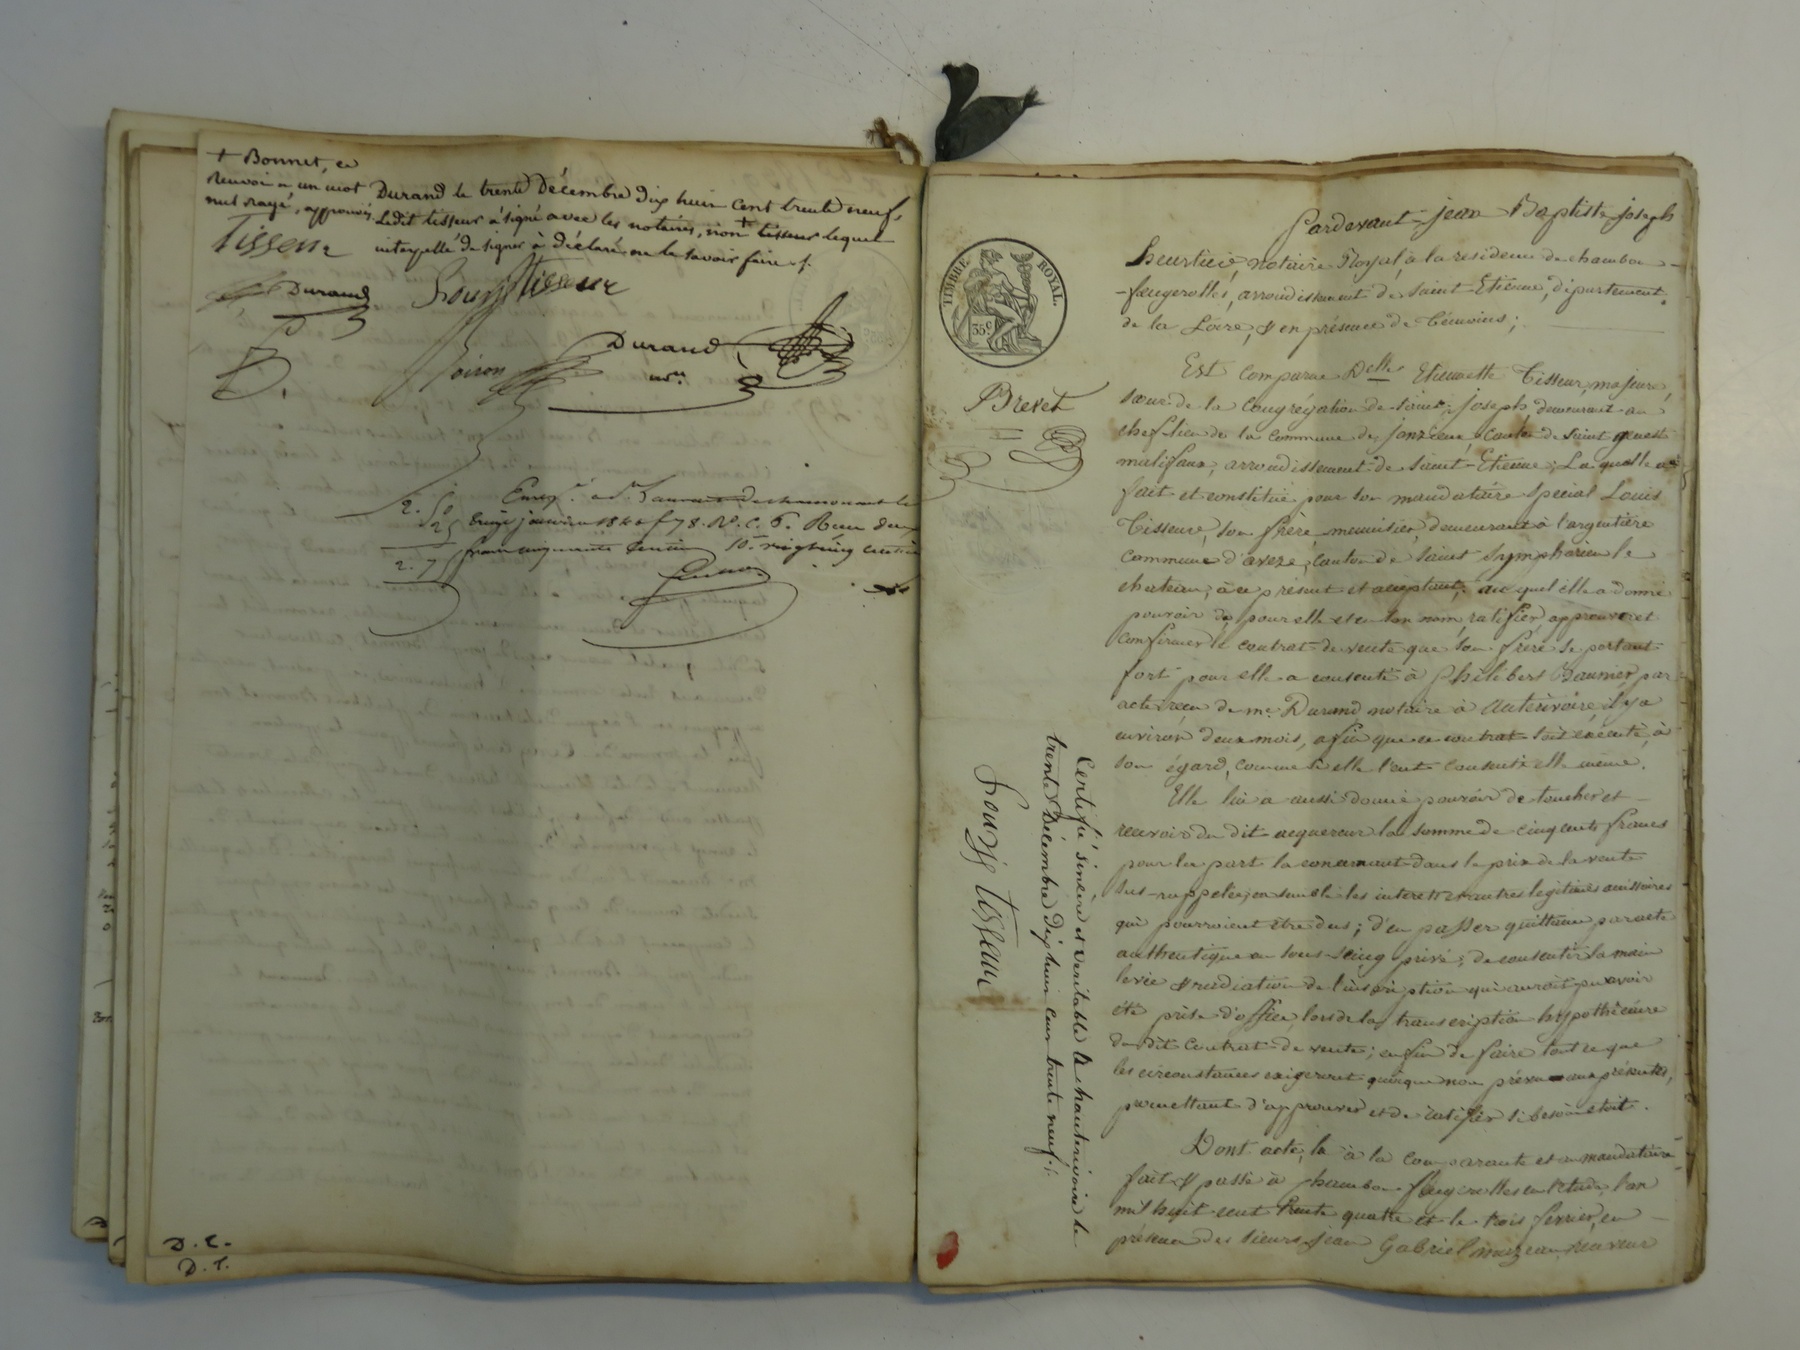 + Bonnet, en
renvoi a un mot
nul rayé, approuvés
Durand le trente Décembre dix huit cent trente neuf,
Ledit tisseur a signé avec les notaires, non + tisseur lequel
interpellé de signer à déclaré ne le savoir faire
Tisseur
Durand
Louis Tisseur
Durand
Poiron
nre
2. 50
25
2. 75
Janvier 1840 f° 78. V. C. 6. Reçu deux
francs cinquante centimes 10e vingt cinq centimes
D. C.
D. T.
Pardevant jean Baptiste joseph
heurtier, notaire Royal, à la residence de chambon
-feugerolles, arrondissement de Saint-Etienne, département
de la Loire, & en présence de témoins;
TIMBRE ROYAL.
35c
Brevet
Est comparue Delle Etiennette Tisseur, majeure,
sœur de la congrégation de saint joseph demeurant au
chef lieu de la commune de jonzieux, canton de saint genest
malifaux, arrondissement de saint-Etienne; Laquelle a
fait et constitué pour son mandataire spécial Louis
Tisseur, son frère, menuisier, demeurant à l'argentière
commune d'aveze, canton de saint symphorien le
chateau, à ce présent et acceptant; auquel elle a donné
pouvoir de pour elle et en son nom, ratifier, approuver et
confirmer le contrat de vente que son frère se portant
fort pour elle a consenti à Philibert Baunier, par
acte reçu de me. Durand notaire à auterivoire, il y a
environ deux mois, afin que ce contrat soit exécuté, à
son égard, comme si elle l'eut consenti elle même.
Elle lui a aussi donné pouvoir de toucher et
recevoir du dit acquereur la somme de cinq cents francs
pour la part la concernant dans le prix de la vente
sus-rappelée, ensemble les interets et autres legitimes accessoires
qui pourroient être dus; d'en passer quittance par acte
authentique ou sous-seing privé; de consentir la main
levée & radiation de l'inscription qui auroit pu avoir
été prise d'office, lors de la transcription hypothécaire
du dit contrat de vente; enfin de faire tout ce que
les circonstances exigeront quoique non prévu aux présentes,
promettant d'approuver et de ratifier si besoin etoit.
Dont acte, lu à la comparante et au mandataire
fait & passé à chambon feugerolles en l'étude, l'an
mil huit cent trente quatre et le trois fevrier, en
présence des sieurs jean Gabriel
Certifié sincère et veritable à hauterivoire le
trente Décembre dix huit cent trente neuf
Louis Tisseur